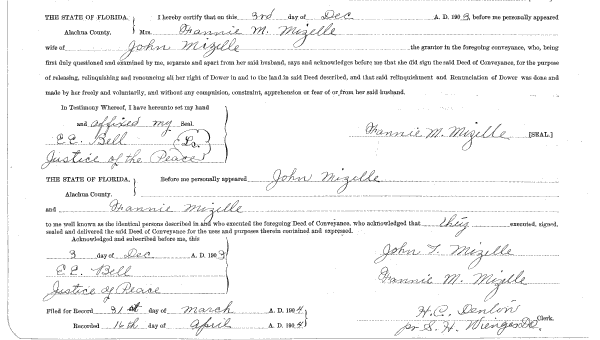 THE STATE OF FLORIDA, I hereby certify that on this 3rd day of Dec A. D. 1903, before me personally appeared
Alachua County. Mrs. Fannie M. Mizelle
wife of John Mizelle the grantor in the foregoing conveyance, who, being
first duly questioned and examined by me, separate and apart from her said husband, says and acknowledges before me that she did sign the said Deed of Conveyance, for the purpose
of releasing, relinquishing and renouncing all her right of Dower in and to the land in said Deed described, and that said relinquishment and Renunciation of Dower was done and
made by her freely and voluntarily, and without any compulsion, constraint, apprehension or fear of or from her said husband.
In Testimony Whereof, I have hereunto set my hand
and affixed my Seal.
E.E. Bell Ls.
Fannie M. Mizelle [SEAL]
Justice of the Peace
THE STATE OF FLORIDA, Before me personally appeared John Mizelle
Alachua County.
and Fannie Mizelle
to me well known as the identical persons described in and who executed the foregoing Deed of Conveyance, who acknowledged that they executed, signed,
sealed and delivered the said Deed of Conveyance for the uses and purposes therein contained and expressed.
Acknowledged and subscribed before me, this
3 day of Dec A. D. 1903
John T. Mizelle
E.E. Bell
Fannie M. Mizelle
Justice of Peace
Filed for Record 31st day of March A. D. 1904
H.C. Denton Clerk.
Recorded 16th day of April A. D. 1904
pr S. H. Wienges D.C.